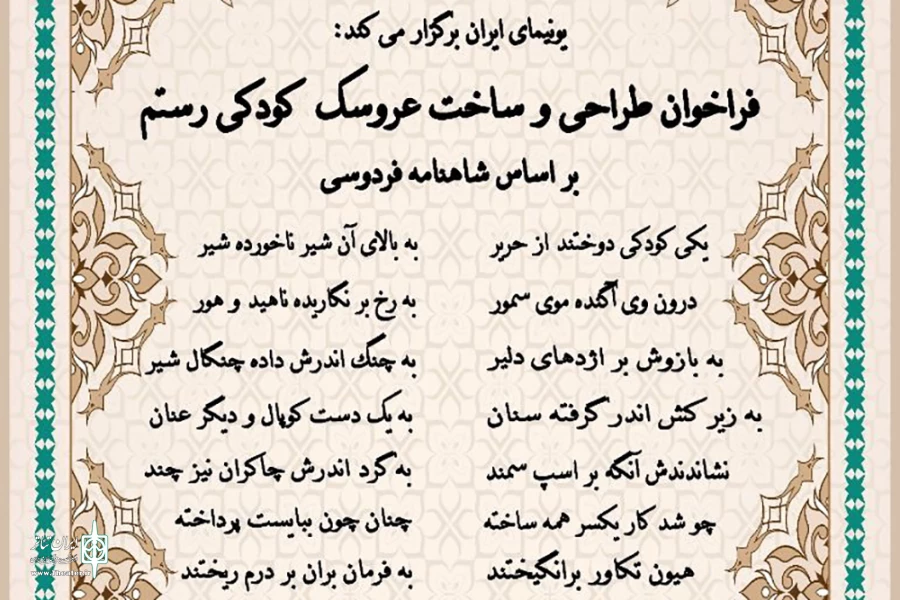 یونیمای ایران برگزار می کند:
فراخوان طراحی و ساخت عروسک کودکی رستم
بر اساس شاهنامه فردوسی
یکی کودکی دوختند از حریر به بالای آن شیر ناخورده شیر
درون وی آگنده موی سمور به رخ بر نگاریده ناهید و هور
به بازوش بر اژدهای دلیر به چنگ اندرش داده چنگال شیر
به زیر کش اندر گرفته سنان به یک دست کوپال و دیگر عنان
نشاندندش آنگه بر اسپ سمند به گرد اندرش چاکران نیز چند
چو شد کار یکسر همه ساخته چنان چون ببایست پرداخته
هیون تکاور برانگیختند به فرمان بران بر درم ریختند
ایران تئاتر